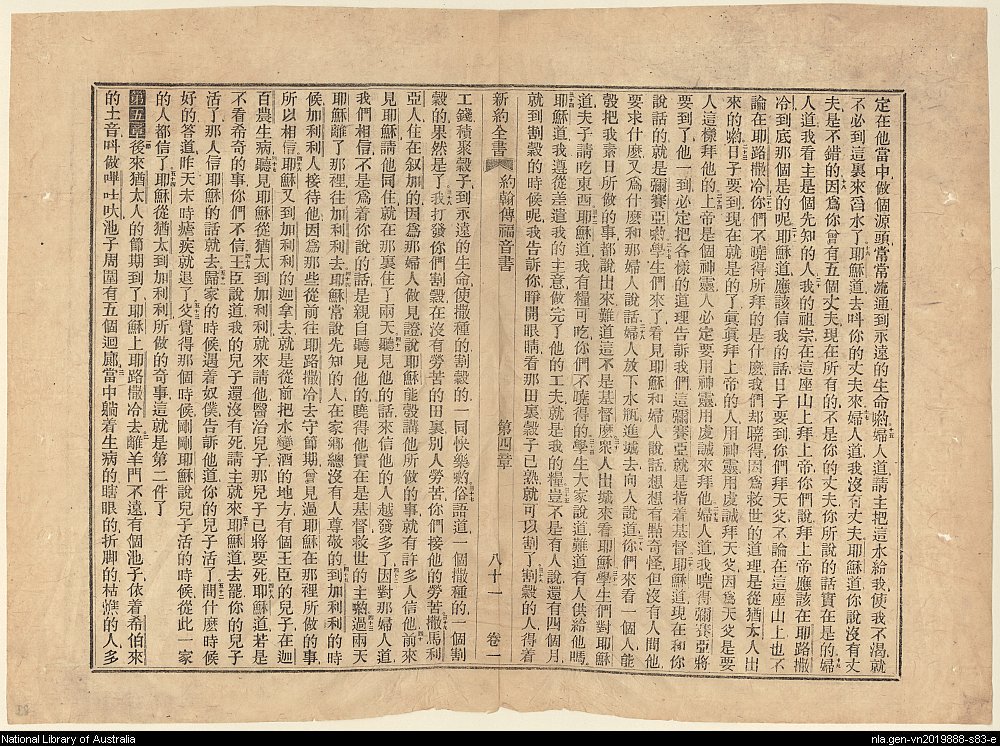 定在他當中做個源頭常常流通到永遠的生命喲婦人道請主把這水給我使我不渴就
不必到這裏來舀水了耶穌道去呌你的丈夫來婦人道我沒有丈夫耶穌道你說沒有丈
夫是不錯的因爲你曾有五個丈夫現在所有的不是你的丈夫你所說的話實在是的婦
人道我看主是個先知的人我的祖宗在這座山上拜上帝你們說拜上帝應該在耶路撒
冷到底那個是的呢耶穌道應該信我的話日子要到你們拜天父不論在這座山上也不
論在耶路撒冷你們不曉得所拜的是什麽我們却曉得因爲救世的道理是從猶太人出
來的喲日子要到現在就是的了眞眞拜上帝的人用神靈用虔誠拜天父因爲天父是要
人這樣拜他的上帝是個神靈人必定要用神靈用虔誠來拜他婦人道我曉得彌賽亞將
要到了他一到必定把各樣的道理告訴我們這彌賽亞就是指着基督耶穌道現在和你
說話的就是彌賽亞喲學生們來了看見耶穌和婦人說話想想有點奇怪但沒有人問他
要求什麽又爲什麽和那婦人說話婦人放下水瓶進城去向人說道你們來看一個人能
彀把我素日所做的事都說出來難道這不是基督麽衆人出城來看耶穌學生們對耶穌
道夫子請吃東西耶穌道我有糧可吃你們不曉得的學生大家說道難道有人供給他嗎
耶穌道我遵從差遣我的主意做完了他的工夫就是我的糧豈不是有人說還有四個月
就到割穀的時候呢我告訴你睜開眼睛看那田裏穀子已熟就可以割了割穀的人得着
新約全書 約翰傳福音書 第四章 八十一 卷一
工錢積聚穀子到永遠的生命使撒種的割穀的一同快樂喲俗語道一個撒種的一個割
穀的果然是了我打發你們割穀在沒有勞苦的田裏別人勞苦你們接他的勞苦撒馬利
亞人住在叙加的因爲那婦人做見證說耶穌能彀講他所做的事就有許多人信他前來
見耶穌請他同住就在那裏住了兩天聽見他的話來信他的人越發多了因對那婦人道
我們相信不是爲着你說的話是親自聽見他的曉得他實在是基督救世的主喲過兩天
耶穌離了那裡往加利利去耶穌常說先知的人在家鄉總沒有人尊敬的到加利利的時
候加利利人接待他因爲那些從前往耶路撒冷去守節期曾見過耶穌在那裡所做的事
所以相信耶穌又到加利利的迦拿去就是從前把水變酒的地方有個王臣的兒子在迦
百農生病聽見耶穌從猶太到加利利就來請他醫治兒子那兒子已將要死耶穌道若是
不看希奇的事你們不信王臣說道我的兒子還沒有死請主就來耶穌道去罷你的兒子
活了那人信耶穌的話就去歸家的時候遇着奴僕告訴他道你的兒子活了問什麽時候
好的答道昨天未時瘧疾就退了父覺得那個時候剛剛耶穌說兒子活的時候從此一家
的人都信了耶穌從猶太到加利利所做的奇事這就是第二件了
第五章後來猶太人的節期到了耶穌上耶路撒冷去離羊門不遠有個池子依着希伯來
的土音呌做嗶吐吠池子周圍有五個迴廊當中躺着生病的瞎眼的折脚的枯㿈的人多
National Library of Australia
nla.gen-vn2019888-s83-e